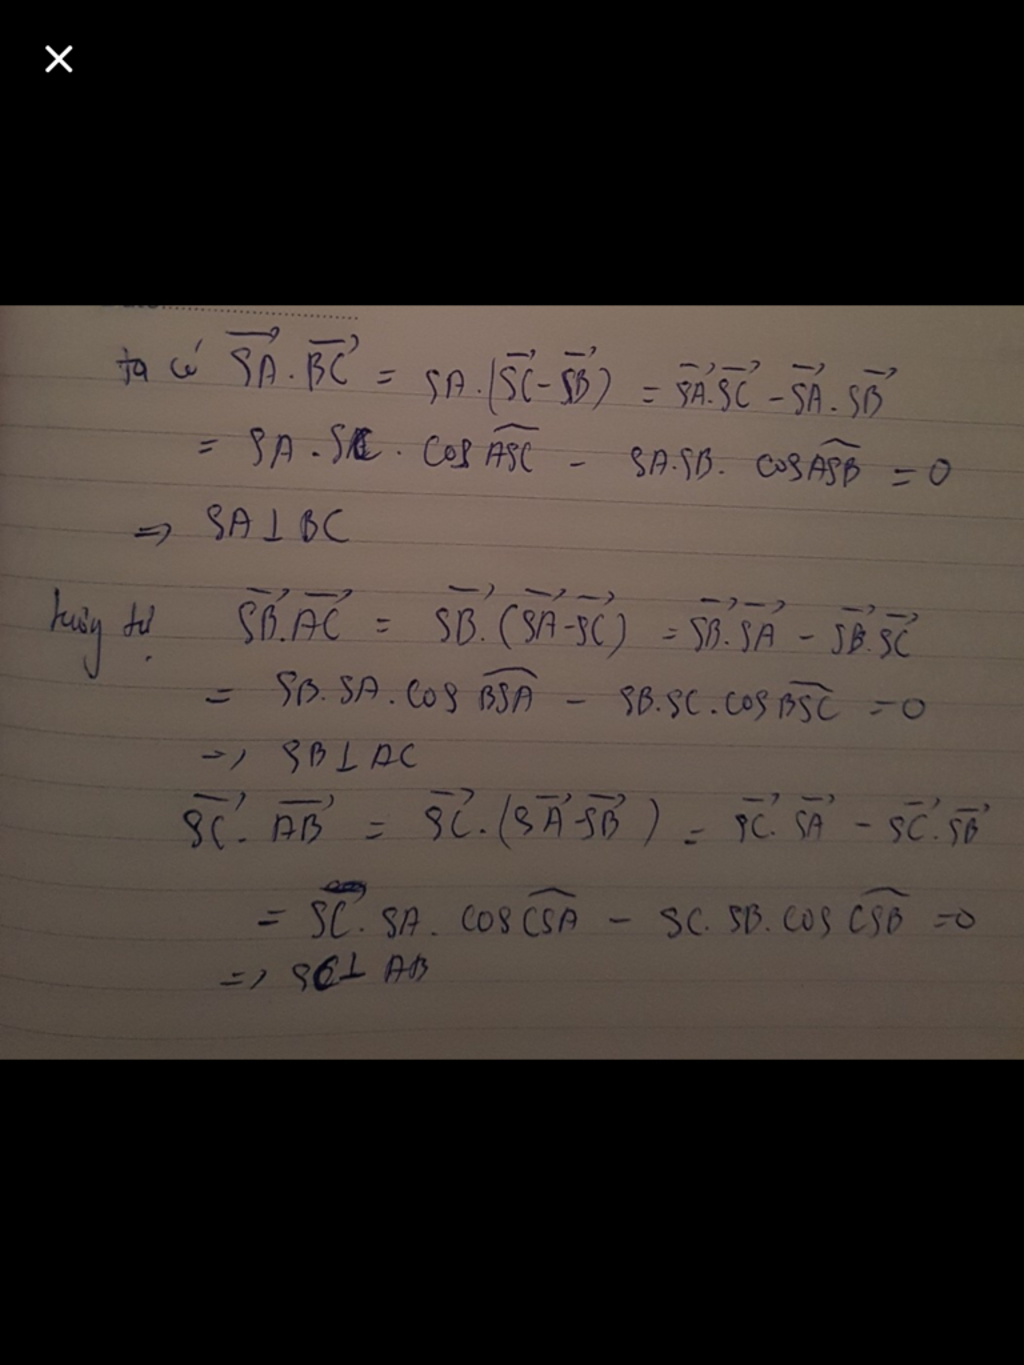 ta có SA⃗.BC⃗ = SA.(SC⃗-SB⃗) = SA⃗.SC⃗ - SA⃗.SB⃗
= SA.SC. cos ASC^ - SA.SB. cos ASB^ = 0
=> SA⊥BC
tương tự SB⃗.AC⃗ = SB⃗.(SA⃗-SC⃗) = SB⃗.SA⃗ - SB⃗.SC⃗
= SB.SA.cos BSA^ - SB.SC.cos BSC^ = 0
=> SB⊥AC
SC⃗. AB⃗ = SC⃗.(SA⃗-SB⃗) = SC⃗. SA⃗ - SC⃗.SB⃗
= SC. SA. cos CSA^ - SC. SB. cos CSB^ = 0
=> SC⊥ AB